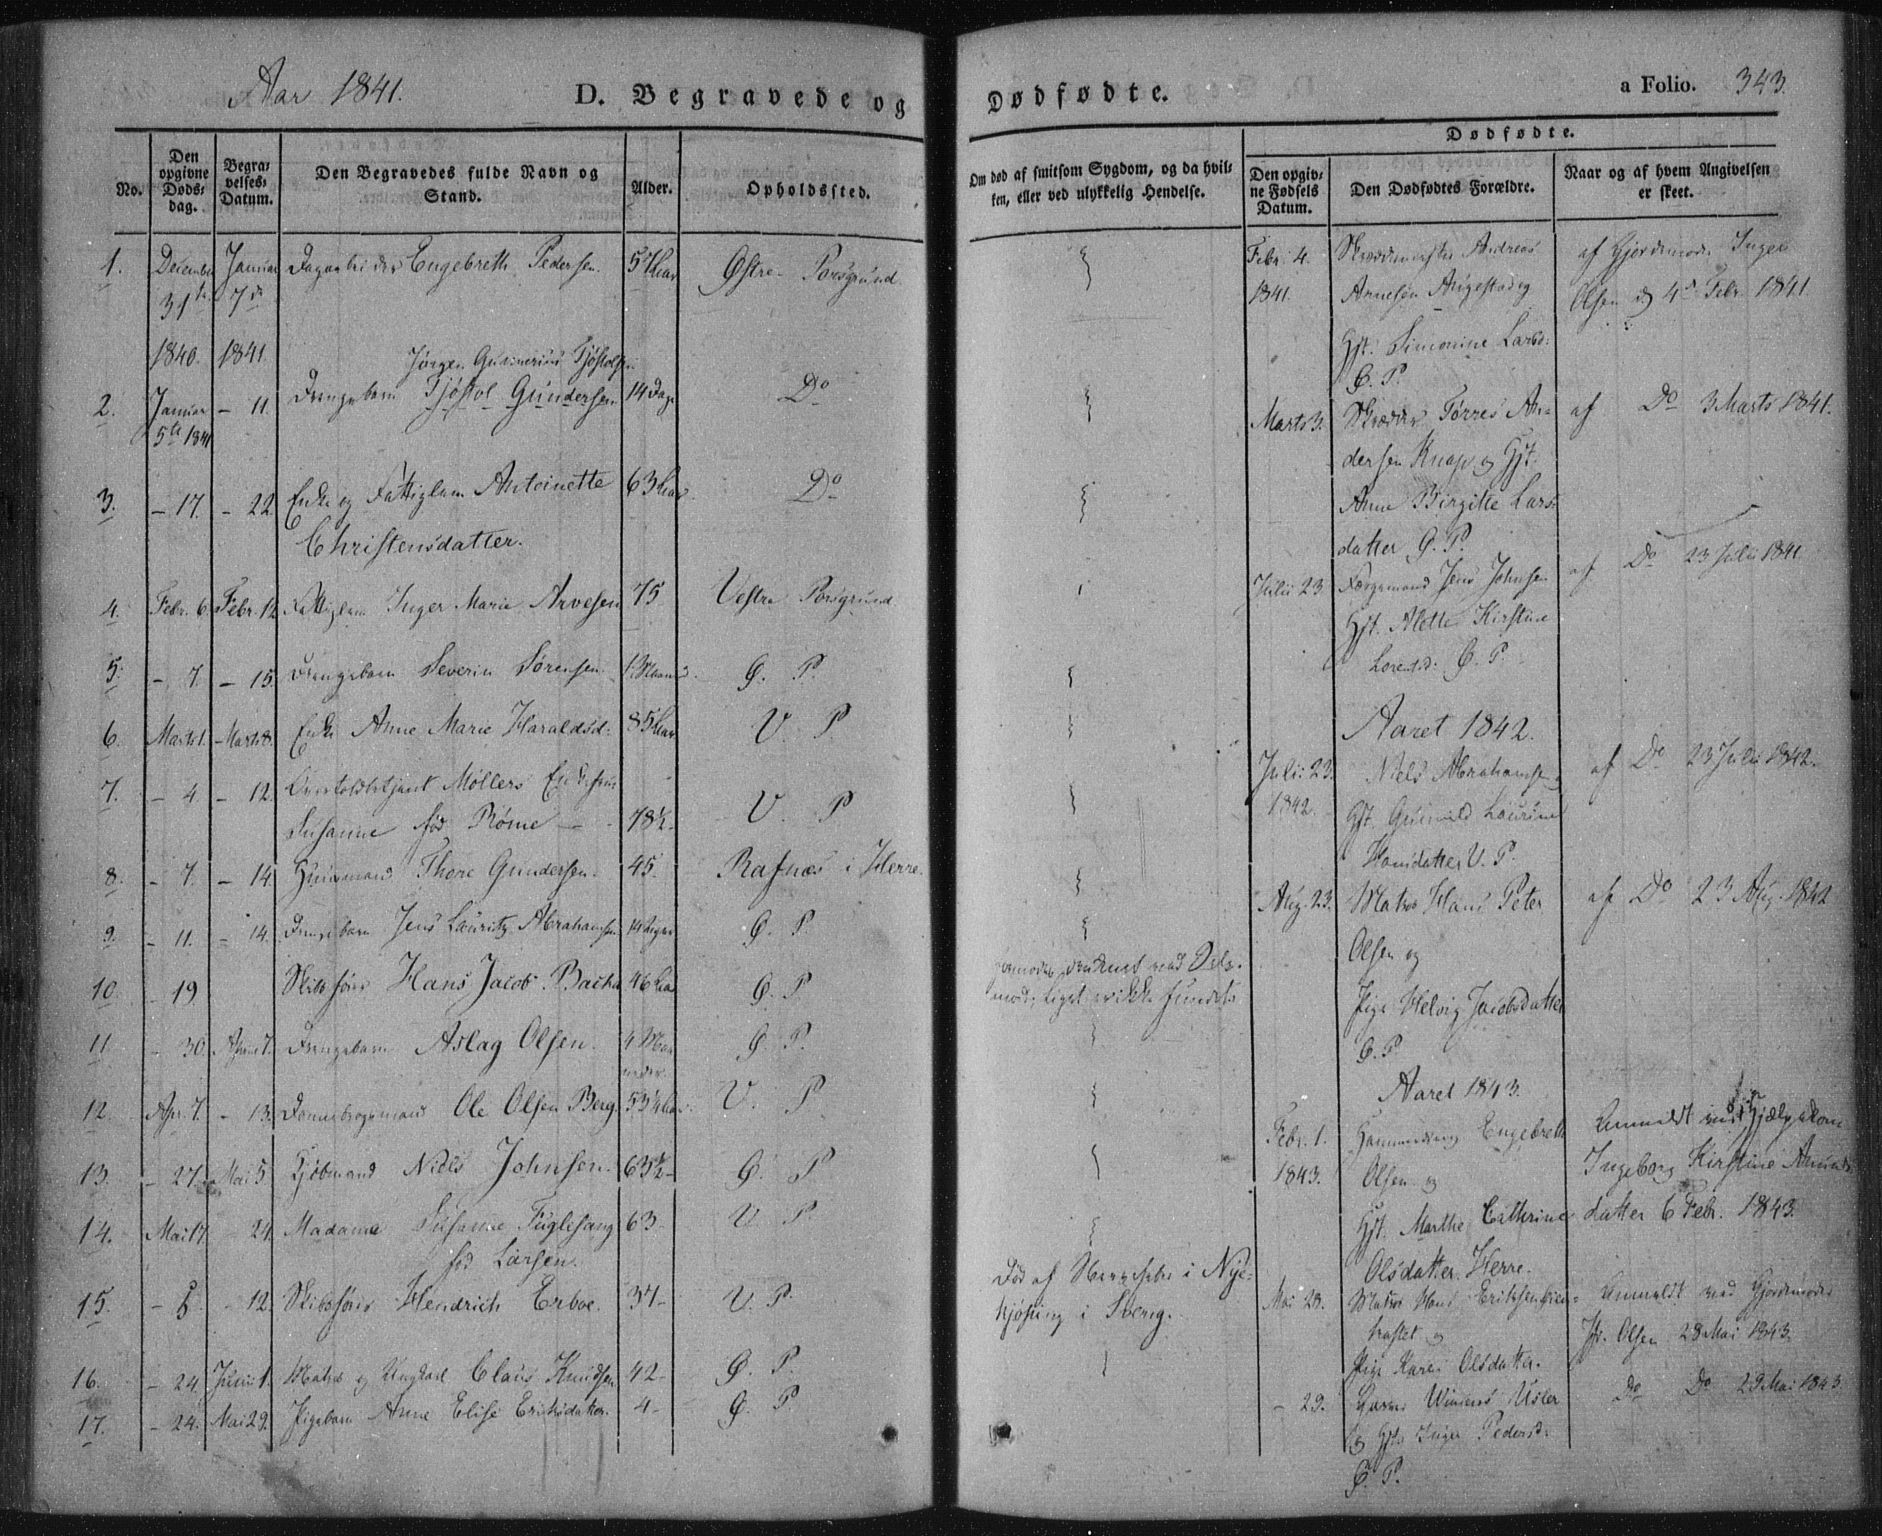 Aar 1841.
D. Begravede og
No.
Den opgivne Døds-dag.
Begra-velses-Datum.
Den Begravedes fulde Navn og Stand.
Alder.
Opholdssted.
1. December 31te 1840. Januar 7de 1841. Engebreth Pedersen. Østre Porsgrund
Jørgen Gunnerius Tjøstolsen
2. Januar 5te 1841 – 11. Drengebarn Tjøstol Gundersen 14 Dage Do
3. – 17. – 22. Enke og Fattiglem Antoinette 63 Aar Do
Christensdatter.
4. Febr. 6. Febr. 12 Fattiglem Inger Marie Arvesen 75 Vestre Porsgrund
5. – 7. – 15. Drengebarn Severin Sørensen Ø. P.
6. Marts 1. Marts 8. Enke Anne Marie Haraldsd. 85 Aar V. P.
7. – 4. – 12. Møllers
Susanne fød Røme – 78½ V. P
8. – 7. – 14 Huusmand Thore Gundersen. 45. Rafnæs i Herre.
9. – 11. – 14. Drengebarn Jens Lauritz Abrahamsen Ø. P.
10. – 19. Skibsfører Hans Jacob 46 Aar Ø. P
11 – 30. April 7. Drengebarn Aslag Olsen. 4 Maaneder. Ø. P.
12. Apr. 7. – 13. Dannebrogsmand Ole Olsen Berg. V. P.
13. – 27. Mai 5 Kjøbmand Niels Johnsen. 63½ – Ø. P
14. Mai 17 24. Madame Susanne Fuglesang 63 – V. P.
fød Larsen.
15. – 12. Skibsfører Hendrich Erboe. 37 – V. P.
16. – 24. Juni 1. Matros og Ungkarl Claus Knudsen 42 – Ø. P.
17. – 24. Mai 29. Pigebarn Anne Elise Eriksdatter. 4 – Ø. P
Dødfødte.
a Folio. 343.
Om død af smitsom Sygdom, og da hvil-
ken, eller ved ulykkelig Hendelse.
Dødfødte.
Den opgiv-
ne Fødsels
Datum.
Den Dødfødtes Forældre.
Naar og af hvem Angivelsen
er skeet.
Liget er ikke fundet.
Død af i Nye-
kjøbing i Sverig.
Febr. 4. Andreas af Gjordemoder Inger
1841. Arnesen Augestad og Olsen d. 4de Febr. 1841.
Hst. Simonine Larsd.
Ø. P.
Marts 3. Skræder Torres An- af Do 3 Marts 1841.
dersen Knap og Hst.
Anne Birgitte Lars-
datter Ø. P.
Julii 23 Færgemand Jens Johnsen af Do 23 Julii 1841.
Hst. Alette Kirstine
Lorentsd. Ø. P.
Aaret 1842.
Julii 23. Niels Abrahamsen og af Do 23 Julii 1842.
1842. Hst. Gunnild Laurine
Hansdatter V. P.
Aug. 23. Matros Hans Peter af Do 23 Aug. 1842
Olsen og
Pige Helvig Jacobsdatter
Ø. P
Aaret 1843.
Febr. 1. Engebreth Anmeldt ved
1843. Olsen og Ingeborg Kirstine Amunds-
Hst. Marthe Cathrine datter 6 Febr. 1843.
Olsdatter. Herre.
Mai 28. Matros Hans Eriksen Anmeldt ved Gjordemoder
og Olsen 28 Mai 1843.
Pige Karen Olsdatter.
– 29. Do Do 29 Mai 1843.
og Hst. Inger Pedersd.
Ø. P.